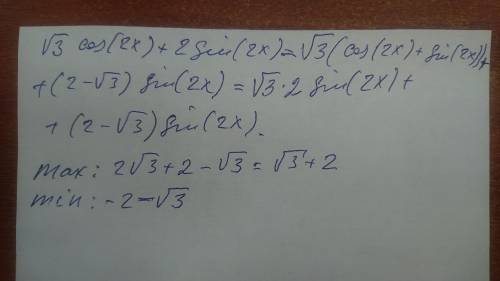 √3 cos(2x) + 2 sin(2x) = √3 (cos(2x) + sin(2x)) +
+ (2 - √3) sin(2x) = √3 · 2 sin(2x) +
+ (2 - √3) sin(2x).
max: 2√3 + 2 - √3 = √3 + 2
min: -2 - √3